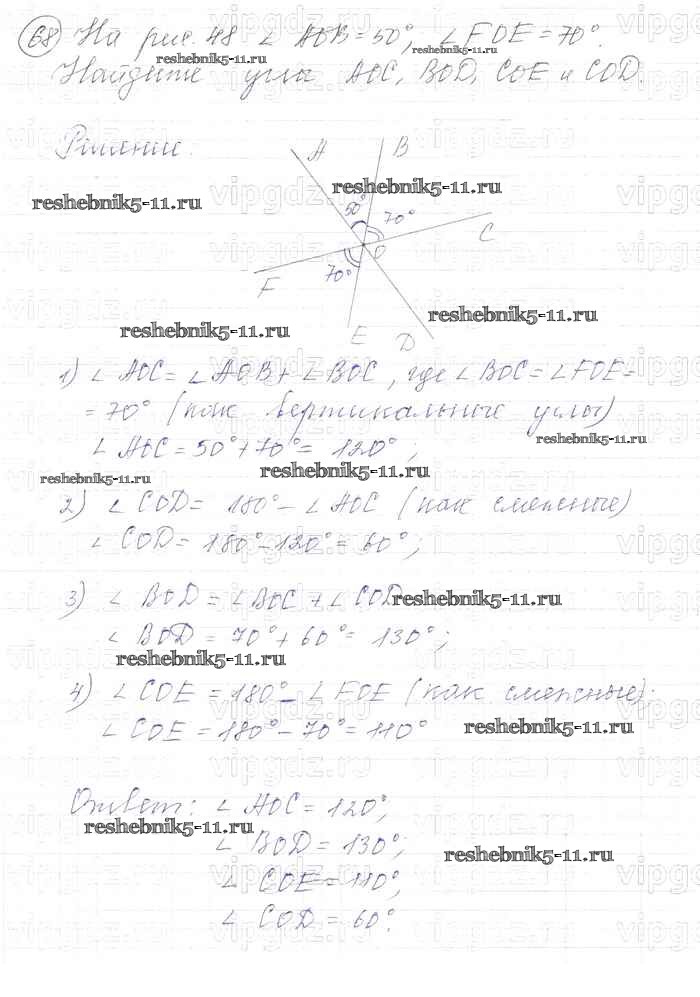 68 На рис. 48 ∠ AOB = 50°, ∠ FOE = 70°.
reshebnik5-11.ru reshebnik5-11.ru
Найдите углы AOC, BOD, COE и COD.
Решение:
A B
reshebnik5-11.ru reshebnik5-11.ru
50° 70°
C
O
70°
F
reshebnik5-11.ru
reshebnik5-11.ru
E D
1) ∠ AOC = ∠ AOB + ∠ BOC, где ∠ BOC = ∠ FOE =
= 70° (как вертикальные углы)
reshebnik5-11.ru
∠ AOC = 50° + 70° = 120°;
reshebnik5-11.ru reshebnik5-11.ru
2) ∠ COD = 180° - ∠ AOC (как смежные)
∠ COD = 180° - 120° = 60°;
3) ∠ BOD = ∠ BOC + ∠ COD
reshebnik5-11.ru
∠ BOD = 70° + 60° = 130°;
reshebnik5-11.ru
4) ∠ COE = 180° - ∠ FOE (как смежные);
∠ COE = 180° - 70° = 110°
reshebnik5-11.ru
Ответ: ∠ AOC = 120°,
reshebnik5-11.ru
∠ BOD = 130°;
reshebnik5-11.ru
∠ COE = 110°,
∠ COD = 60°.
vipgdz.ru